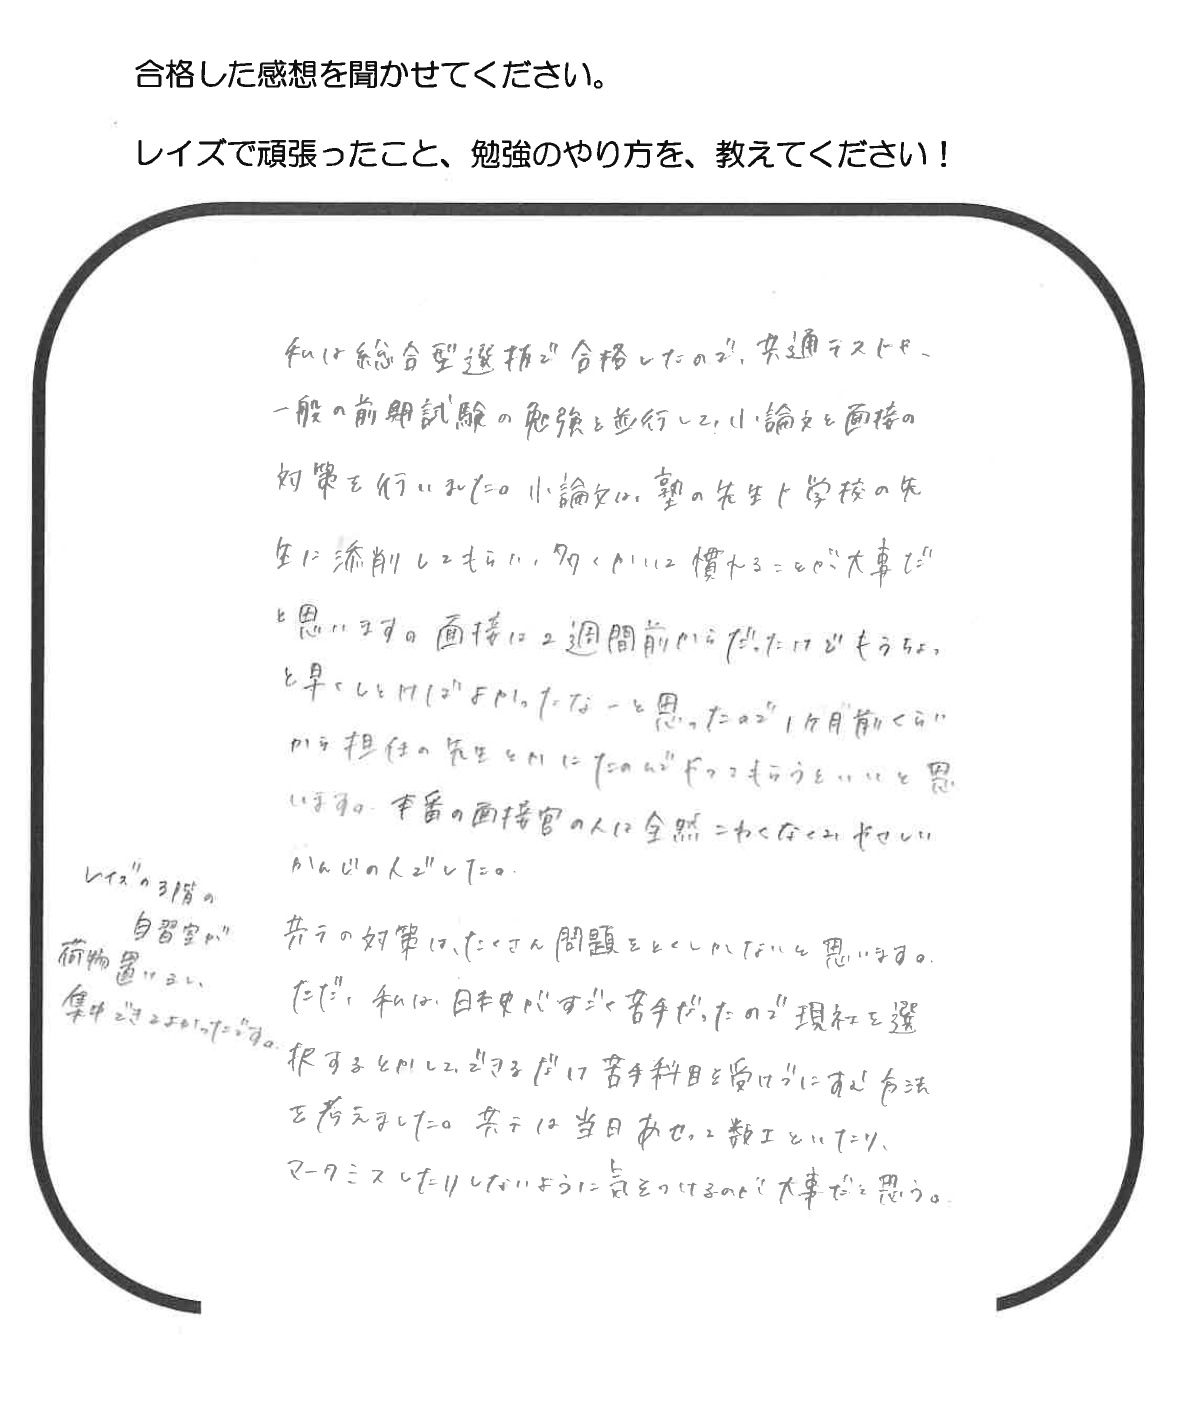 合格した感想を聞かせてください。
レイズで頑張ったこと、勉強のやり方を、教えてください！
私は総合型選抜で合格したので、共通テストや、
一般の前期試験の勉強と並行して、小論文と面接の
対策を行いました。小論文は、塾の先生や学校の先
生に添削してもらい、多くかいて慣れることが大事だ
と思います。面接は2週間前からだったけどもうちょっ
と早くしとけばよかったなーと思ったので1ヶ月前くらい
から担任の先生とかにたのんでやってもらうといいと思
います。本番の面接官の人は全然こわくなくてやさしい
かんじの人でした。
共テの対策は、たくさん問題をとくしかないと思います。
ただ、私は、日本史がすごく苦手だったので現社を選
択するとかして、できるだけ苦手科目を受けずにすむ方法
を考えました。共テは当日あせって数Iといたり、
マークミスしたりしないように気をつけるのが大事だと思う。
レイズの3階の
自習室が
荷物置けるし、
集中できてよかったです。